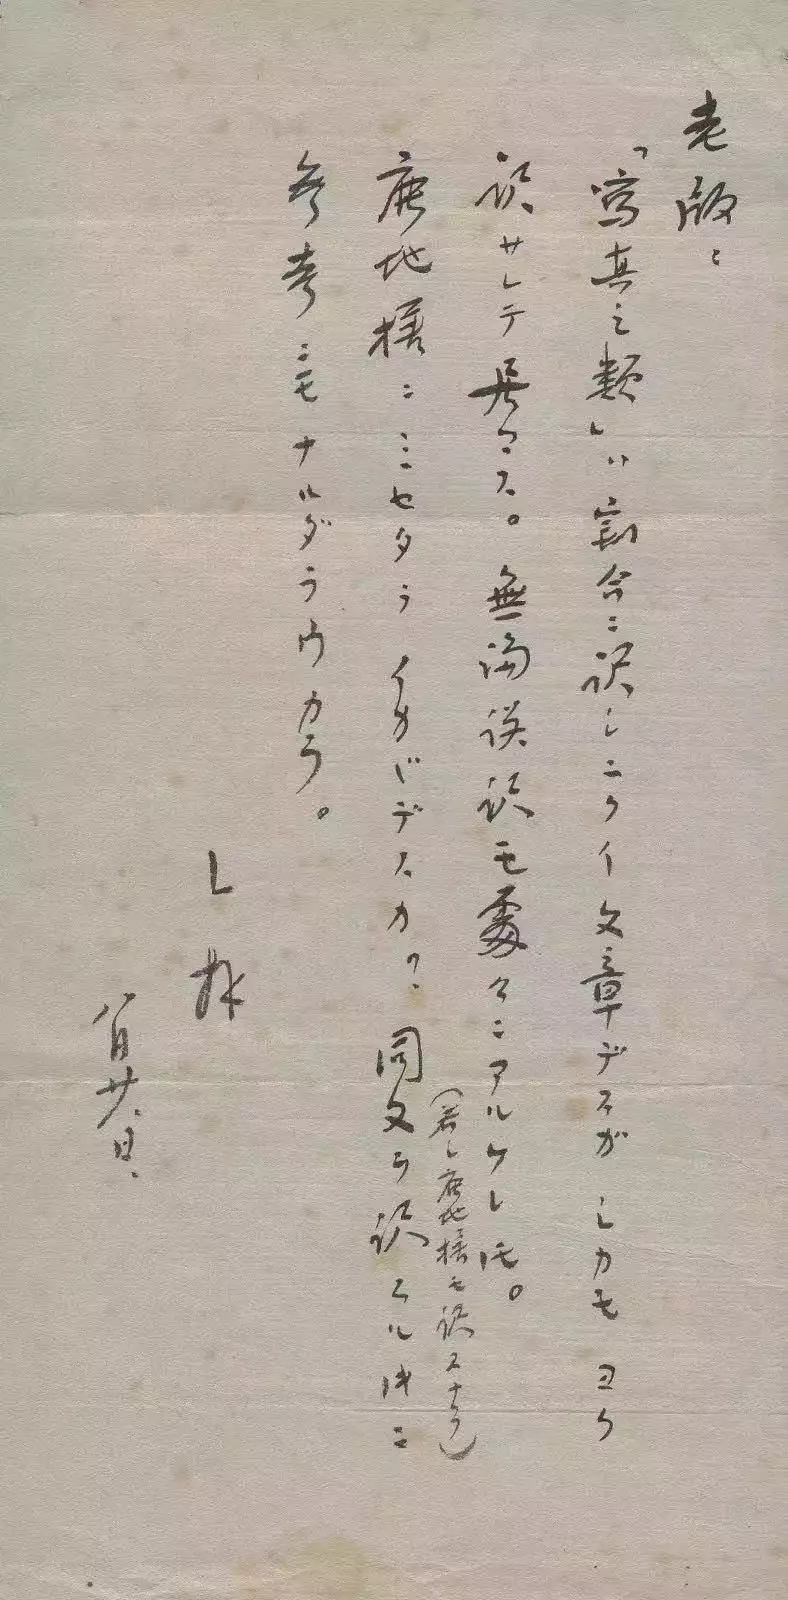 老版：
「寫真之類」ハ割合ニ訳シニクイ文章デスガシカモヨク
訳サレテ居マス。無論誤訳モ處々ニアルケレドモ。
（若シ鹿地様モ訳スナラ）
鹿地様ニミセタライカガデスカ？同文ヲ訳スル時ニ
参考ニモナルダラウカラ。
L 拜
八月廿八日、